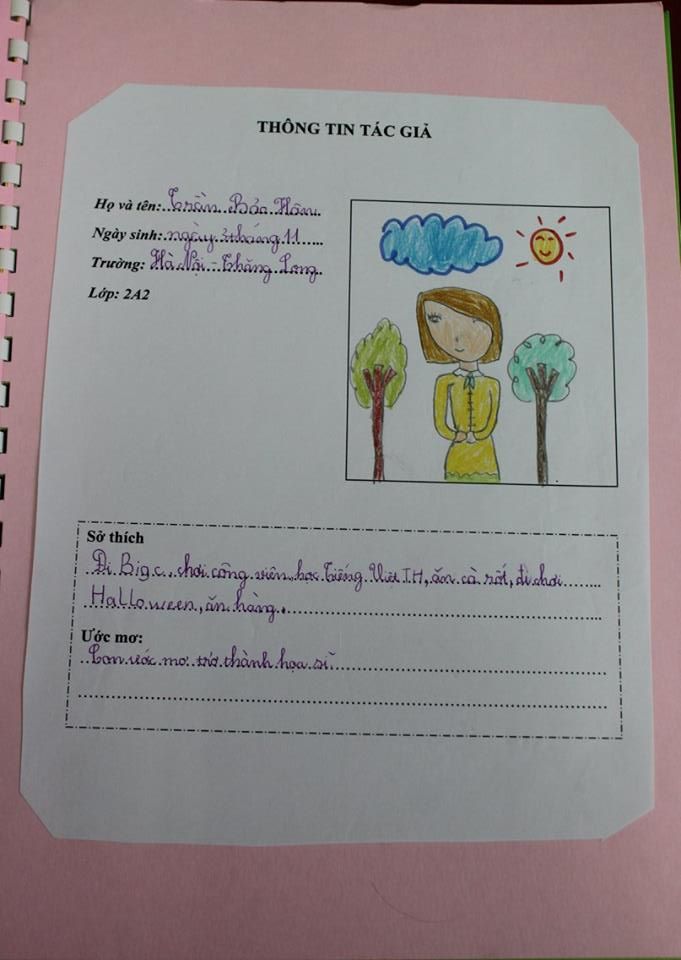 THÔNG TIN TÁC GIẢ
Họ và tên: Trần Bảo Hân
Ngày sinh: ngày 2 tháng 11
Trường: Hà Nội - Thăng Long
Lớp: 2A2
Sở thích
Đi Big c, chơi công viên, học Tiếng Việt T.H, ăn cà rốt, đi chơi
Halloween, ăn hàng.
Ước mơ:
Con ước mơ trở thành họa sĩ